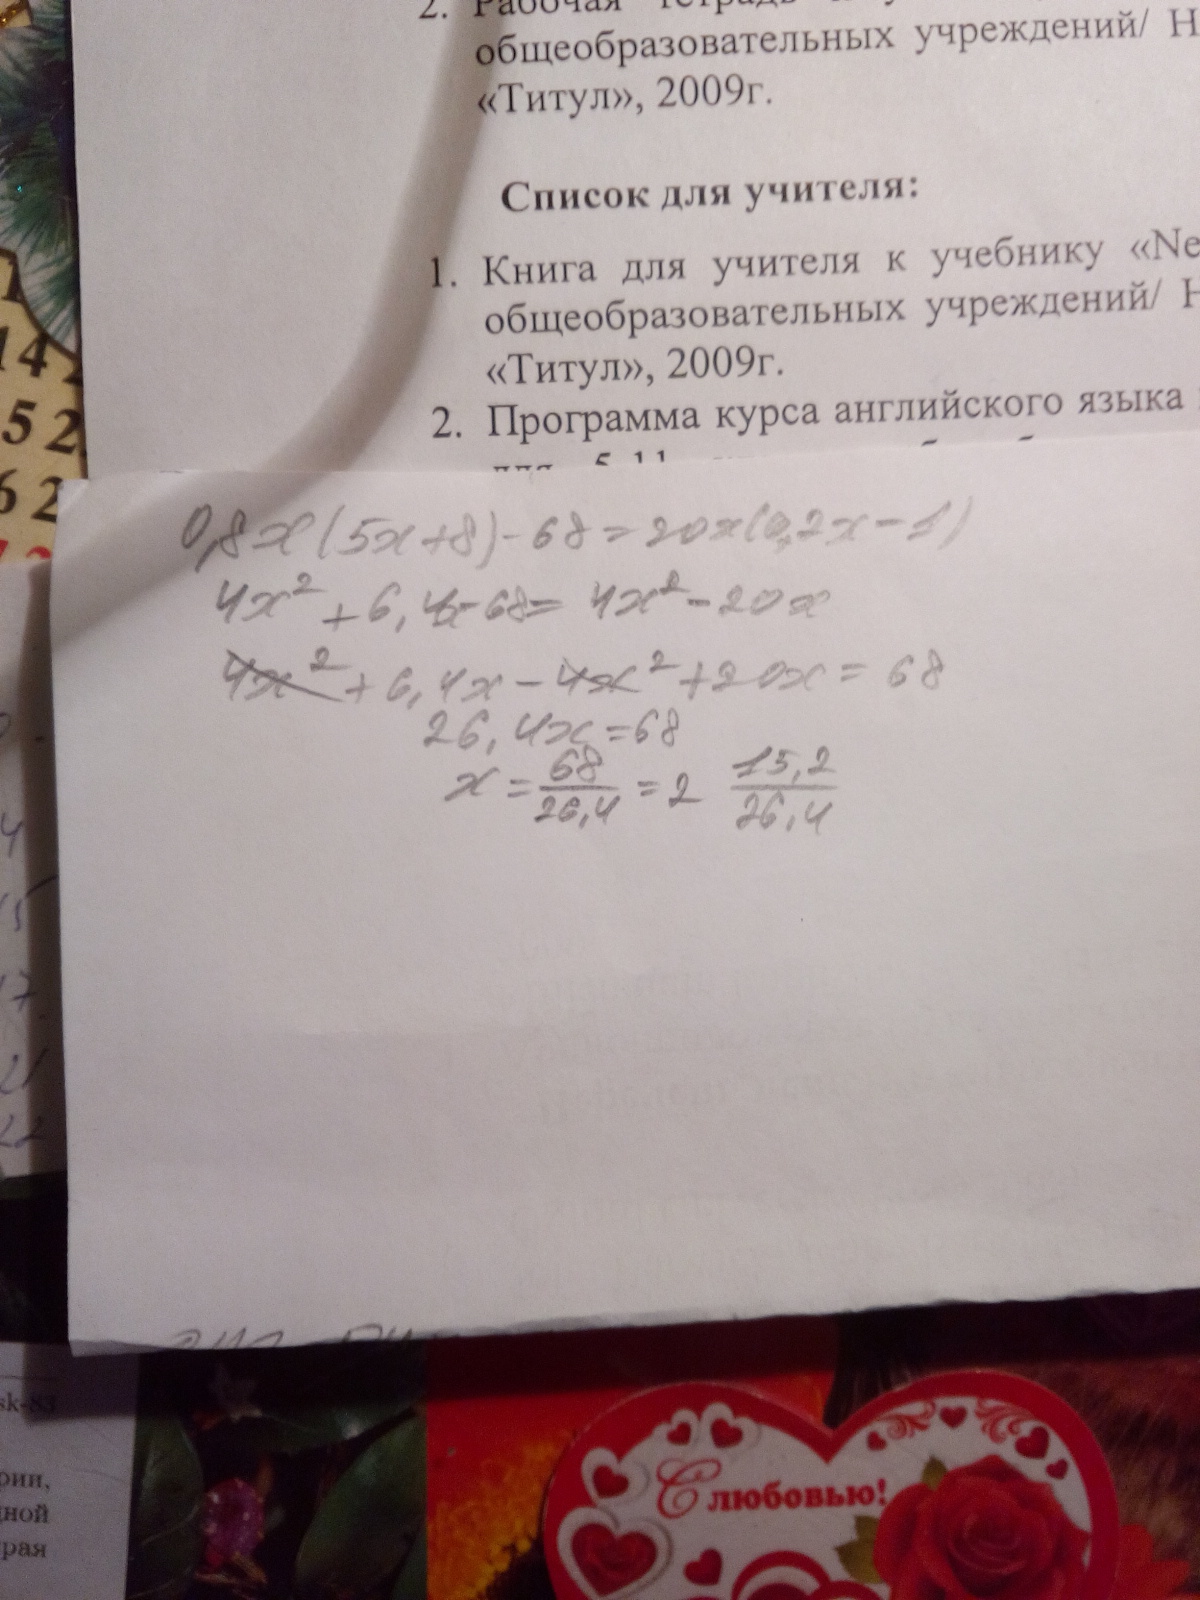 2. Рабочая тетрадь к
общеобразовательных учреждений/ Н
«Титул», 2009г.
Список для учителя:
1. Книга для учителя к учебнику «Ne
общеобразовательных учреждений/ Н
«Титул», 2009г.
2. Программа курса английского языка
для 5-11
0,8x(5x+8)-68=20x(0,2x-1)
4x²+6,4x-68=4x²-20x
4x²+6,4x-4x²+20x=68
26,4x=68
x=68/26,4=2 15,2/26,4
14 2
5 2
6 2
15
17
21
22
sk-83
рии,
дной
рая
С любовью!